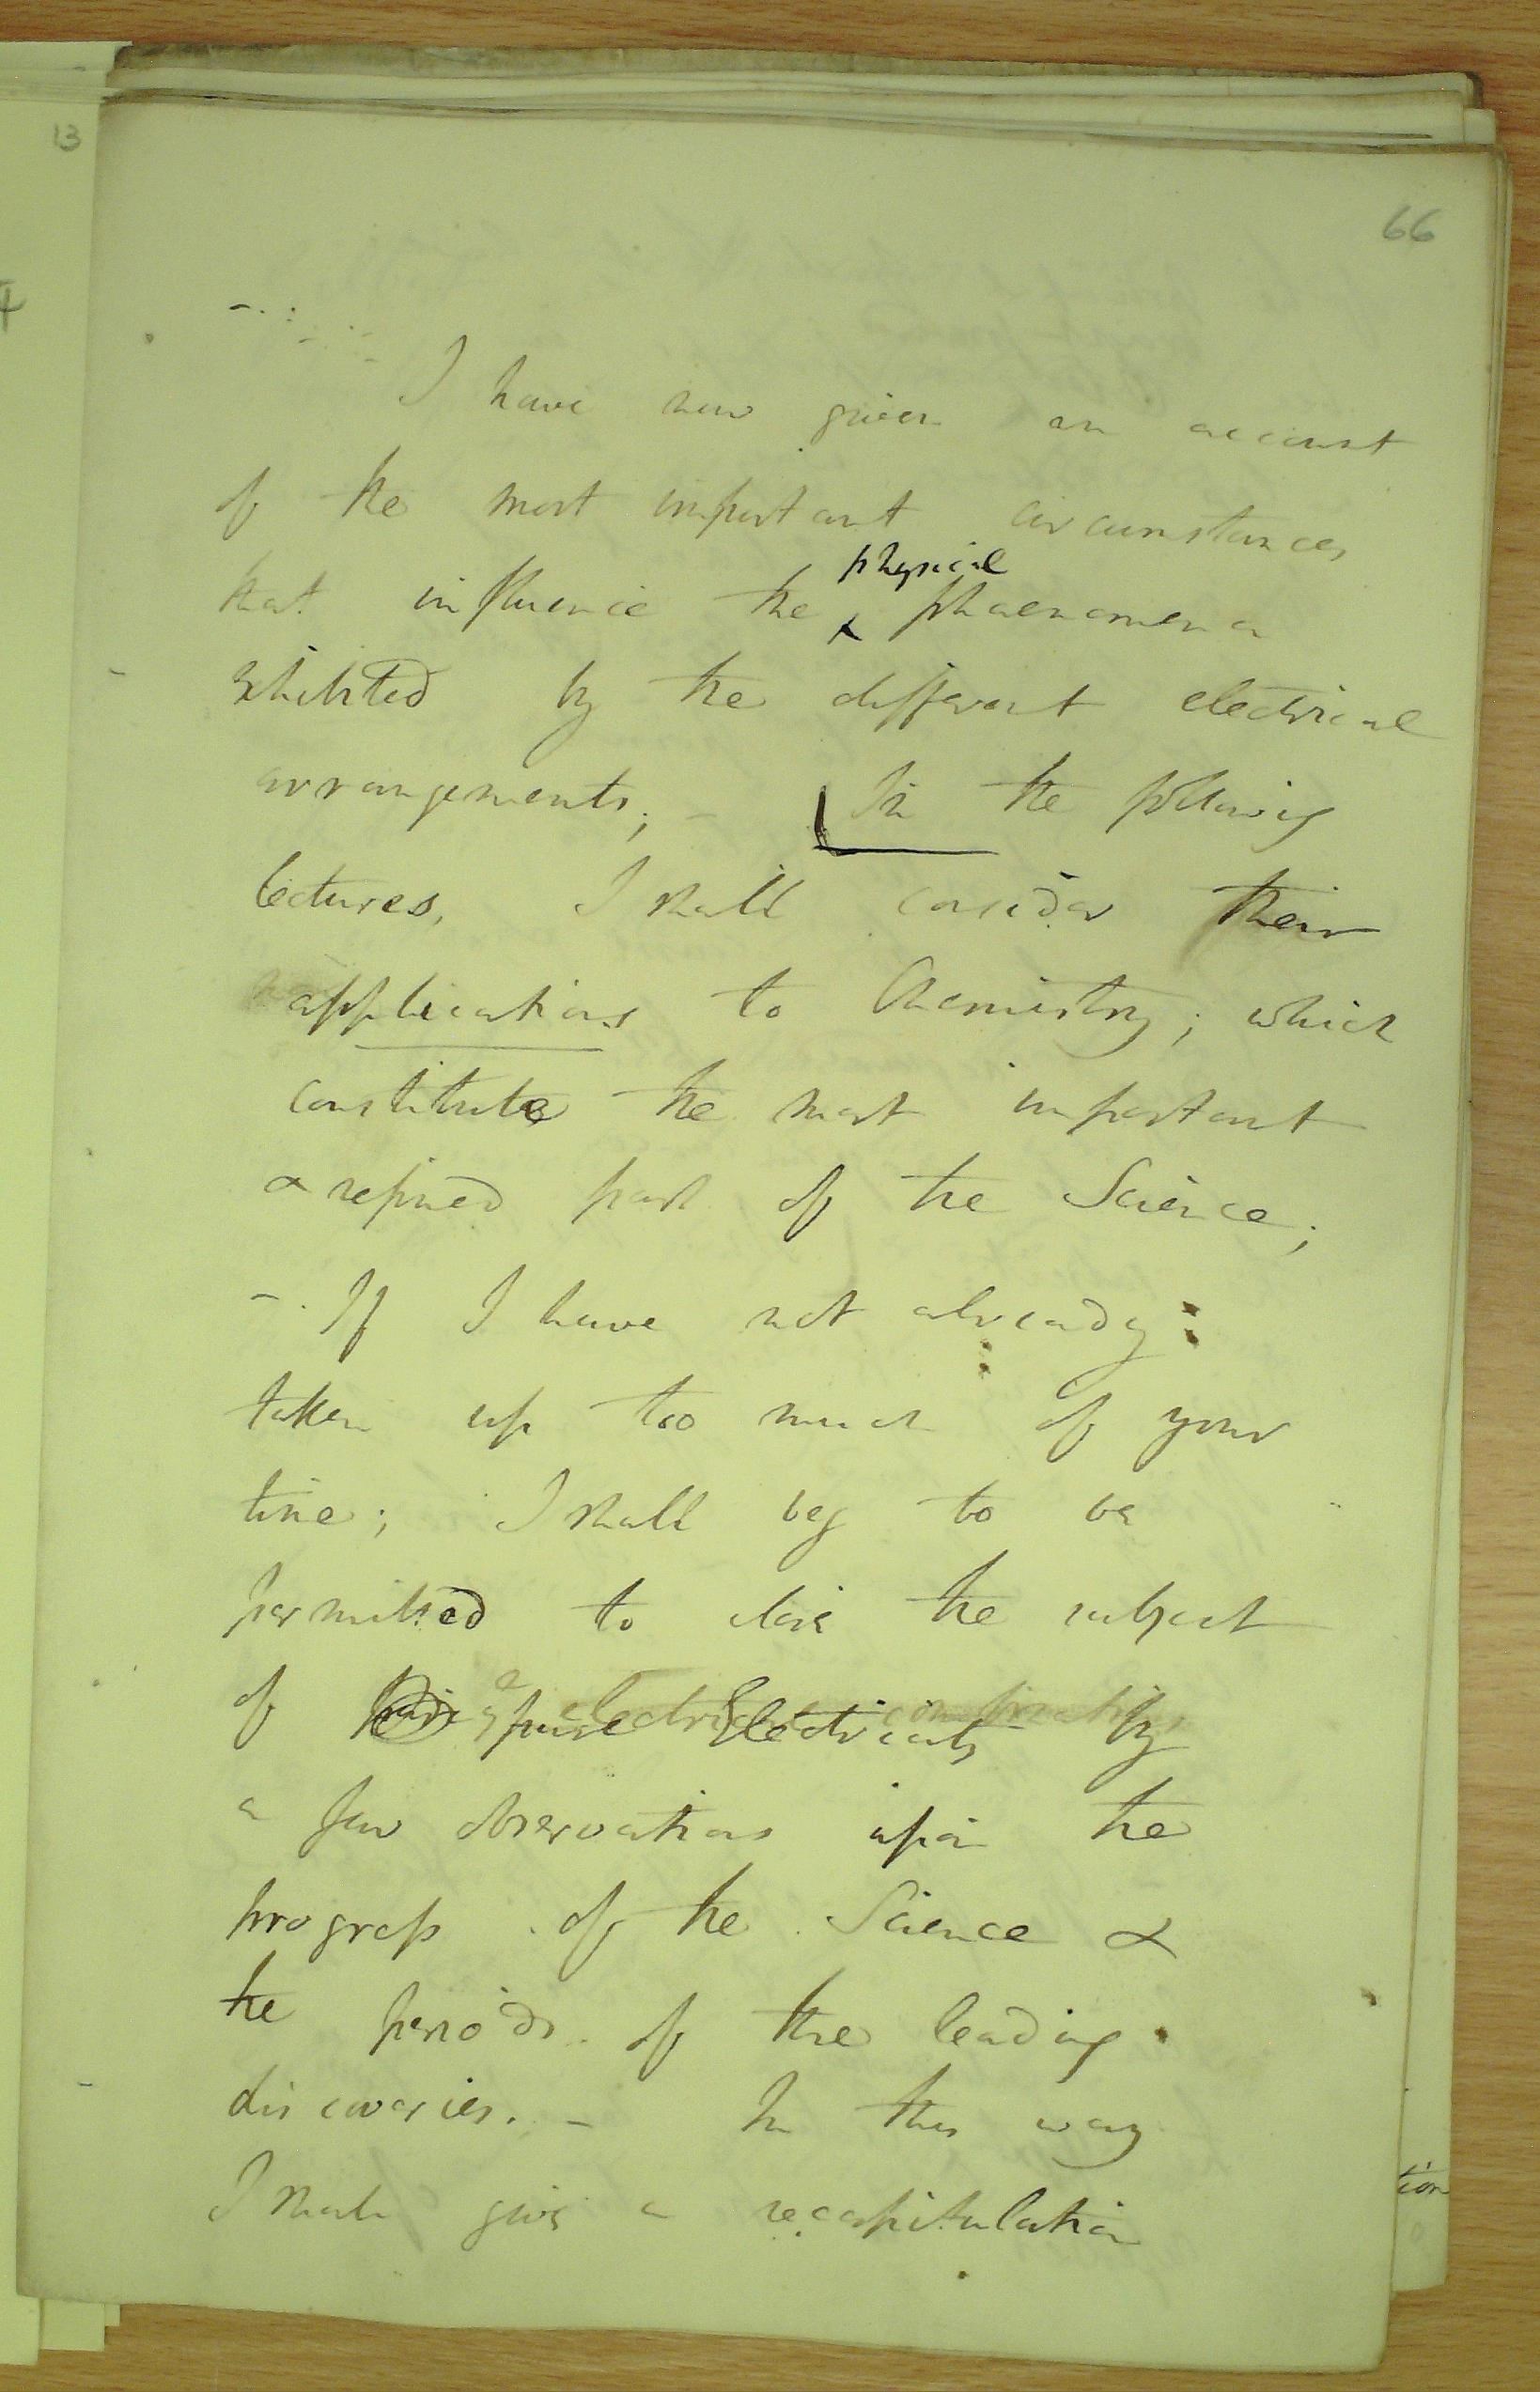 13
66
I have now given an account
of the most important circumstances
physical
that influence the ^ phaenomena
exhibited by the different electrical
arrangements; - In the following
lectures, I shall consider their
applications to Chemistry; which
constitute the most important
& refined part of the Science;
-. If I have not already
taken up too much of your
time; I shall beg to be
permitted to close the subject
of pure Electricity by
a few observations upon the
progress of the Science &
the periods of the leading
discoveries. - In this way
I shall give a recapitulation
tion